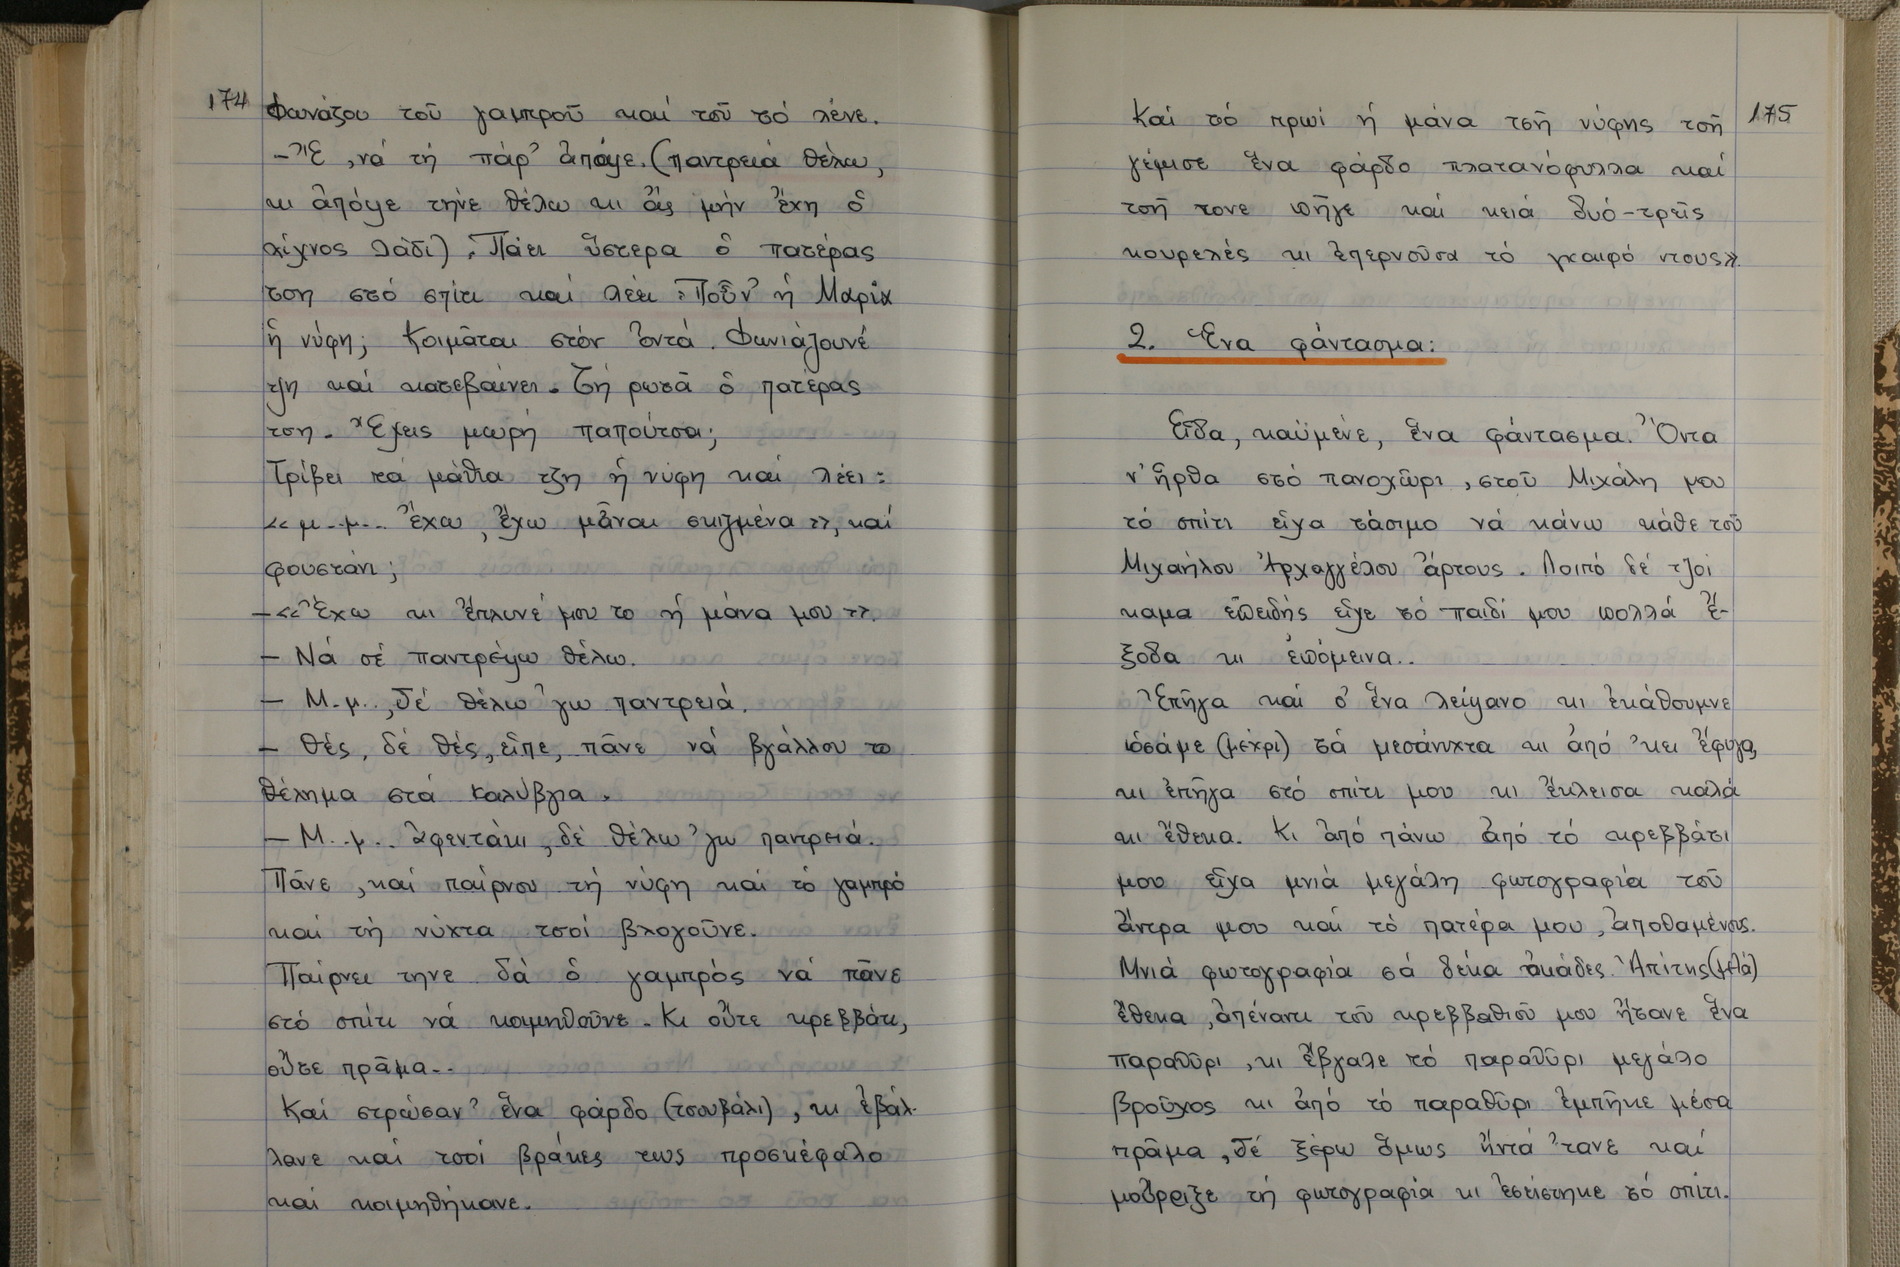 174
Φωνάζου τοῦ γαμπροῦ καί τοῦ τό λένε.
-Ἔ, νά τή πάρ' ἀπόψε. (παντρειά θέλω,
κι ἀπόψε τήνε θέλω κι ἄς μήν ἔχη ὁ
λίχνος λάδι). Πάει ὕστερα ὁ πατέρας
τση στό σπίτι καί λέει: Ποῦν' ἡ Μαρία
ἡ νύφη; Κοιμᾶται στόν ὀντά. Φωνιάζουνέ
τζη καί κατεβαίνει. Τή ρωτᾶ ὁ πατέρας
τση. Ἔχεις μωρή παπούτσα;
Τρίβει τά μάθια τζη ἡ νύφη καί λέει:
«μ..μ... ἔχω, ἔχω μᾶναι σκιζμένα», καί
φουστάνι;
-«Ἔχω κι ἔπλυνέ μου το ἡ μάνα μου».
- Νά σέ παντρέψω θέλω.
- Μ.μ.., δέ θέλω 'γω παντρειά.
- Θές, δέ θές, εἶπε, πᾶνε νά βγάλλου το
θέλημα στά Καλύβγια.
- Μ..μ.. ἀφεντάκι, δέ θέλω 'γω παντρειά.
Πᾶνε, καί παίρνου τή νύφη καί τό γαμπρό
καί τή νύχτα τσοί βλογοῦνε.
Παίρνει τηνε δά ὁ γαμπρός νά πᾶνε
στό σπίτι νά κοιμηθοῦνε. Κι οὔτε κρεββάτι,
οὔτε πρᾶμα..
Καί στρώσαν' ἕνα φάρδο (τσουβάλι), κι ἐβάλ-
λανε καί τσοί βράκες τως προσκέφαλο
καί κοιμηθήκανε.
175
Καί τό πρωί ἡ μάνα τσῆ νύφης τσῆ
γέμισε ἕνα φάρδο πλατανόφυλλα καί
τσῆ τονε πῆγε καί κειά δυό-τρεῖς
κουρελές κι ἐπερνοῦσα τό γκαιρό ντους».
2. Ἕνα φάντασμα:
Εἶδα, καϋμένε, ἕνα φάντασμα. Ὄντα
ν' ἦρθα στό πανοχῶρι, στοῦ Μιχάλη μου
τό σπίτι εἶχα τάσιμο νά κάνω κάθε τοῦ
Μιχαήλου Ἀρχαγγέλου ἄρτους. Λοιπό δέ τζοί
καμα ἐπειδής εἶχε τό παιδί μου πολλά ἔ-
ξοδα κι ἐπόμεινα..
Ἐπῆγα καί σ' ἕνα λείψανο κι ἐκάθουμνε
ὡσάμε (μέχρι) τά μεσάνυχτα κι ἀπό 'κει ἔφυγα,
κι ἐπῆγα στό σπίτι μου κι ἔκλεισα καλά
κι ἔθεκα. Κι ἀπό πάνω ἀπό τό κρεββάτι
μου εἶχα μνιά μεγάλη φωτογραφία τοῦ
ἄντρα μου καί τό πατέρα μου, ἀποθαμένους.
Μνιά φωτογραφία σά δέκα ὀκάδες. Ἀπίτης
ἔθεκα, ἀπέναντι τοῦ κρεββαθιοῦ μου ἤτανε ἕνα
παραθῦρι, κι ἔβγαλε τό παραθῦρι μεγάλο
βροῦχος κι ἀπό τό παραθῦρι ἐμπῆκε μέσα
πρᾶμα, δέ ξέρω ὅμως ἤντά 'τανε καί
μούρριξε τή φωτογραφία κι ἐσείστηκε τό σπίτι.